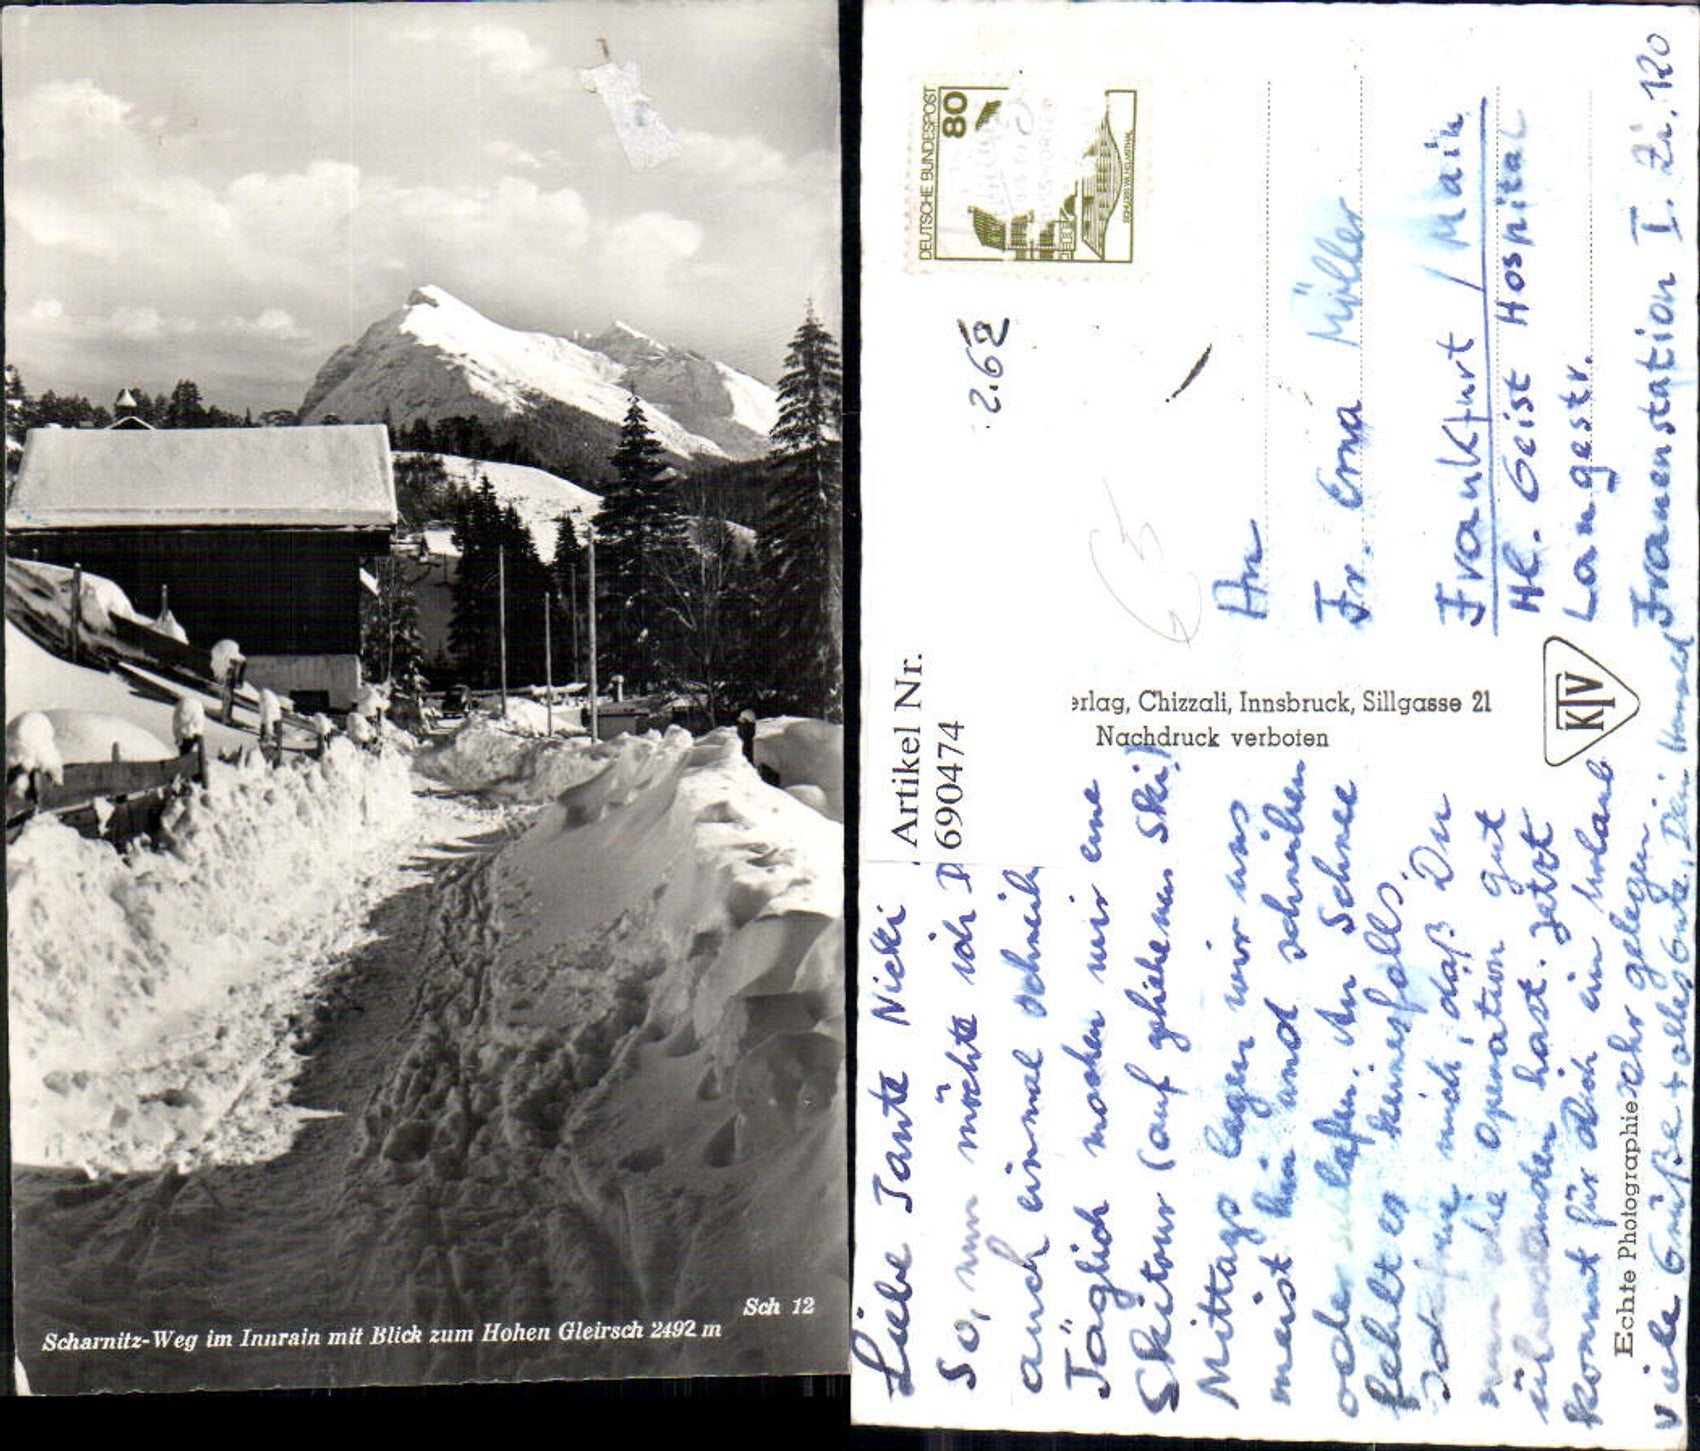 Sch 12
Scharnitz-Weg im Innrain mit Blick zum Hohen Gleirsch 2492 m
DEUTSCHE BUNDESPOST
80
2.62
Artikel Nr.
690474
erlag, Chizzali, Innsbruck, Sillgasse 21
Nachdruck verboten
KTV
Echte Photographie
An
Fr. Erna Müller
Frankfurt / Main
Hl. Geist Hospital
Langestr.
Frauenstation I. Zi. 120
Liebe Tante Nicki
So, nun möchte ich D
auch einmal schreib
Täglich machen wir eine
Skitour (auf geliehenen Ski!)
Mittags legen wir uns
meist hin und schreiben
oder schlafen. An Schnee
fehlt es keinesfalls.
freue mich, daß Du
nun die Operation gut
überstanden hast. Jetzt
kommt für Dich ein Urlaub
sehr gelegen.
viele Grüße + alles Gute, Dein